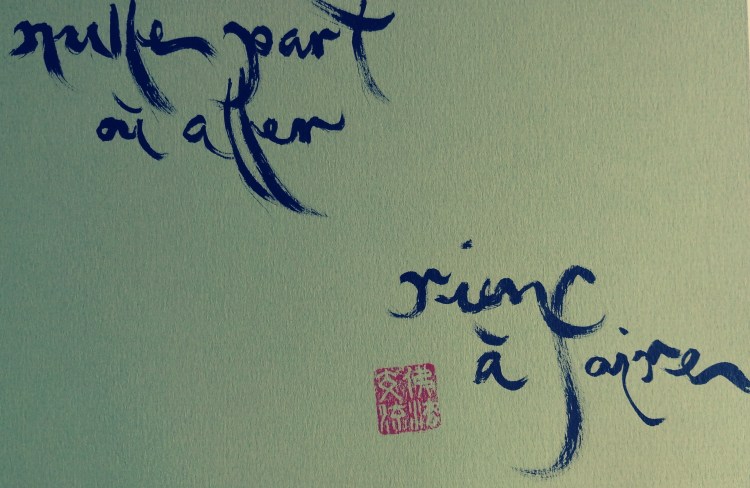 nulle part
où aller
rien
à faire